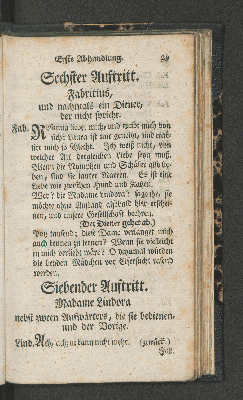 Erste Abhandlung.
Sechster Auftritt.
Fabritius,
und nachmals ein Diener,
der nicht spricht.
Fab. liebt mich, und treibt mich von
sich! daran ist nie gewesen, und
tet mich so schlecht. Ich weiß nicht, von
welcher Art dergleichen Liebe seyn muß.
Wenn die Männchen und Schäfer also
ben, sind sie lauter Narren. Es ist eine
Liebe wie zwischen Hund und Katzen.
Wer? die Madame Lindora? sage ihr, sie
möchte ohne Anstand alsbald hier erschei-
nen, und unsere Gesellschaft beehren.
(Der Diener gehet ab.)
Potz tausend; diese Dame verlanget mich
auch kennen zu lernen? Wenn sie vielleicht
in mich verliebt wäre? O dazumal würden
die beiden Mädchen vor Eifersucht rasend
werden.
Siebender Auftritt.
Madame Lindora
nebst zween Aufwärters, die sie bedienen,
und der Vorige.
Lind. Ach, ich kann nicht mehr. (zurück.)
Fab.